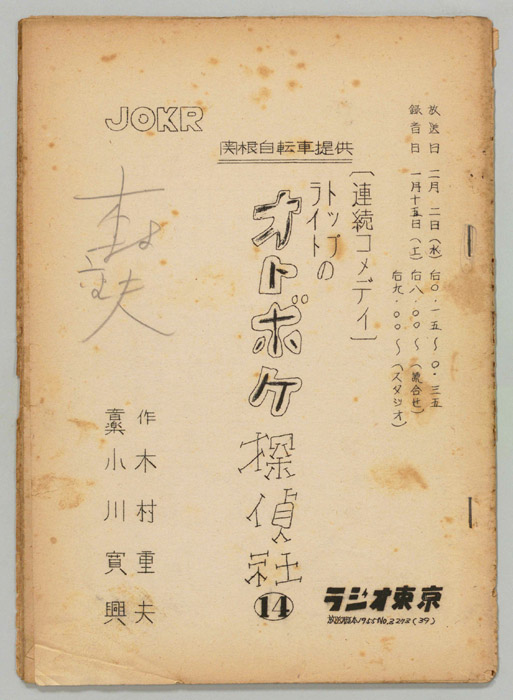 放送日 二月二日(水) 后0・一五〜0・三五
録音日 一月十五日(土) 后八・〇〇〜(顔合せ)
后九・〇〇〜(スタジオ)
JOKR
関根自転車提供
〔連続コメディ〕
トップ
ライトの
オトボケ探偵社
14
作 木村重夫
音楽 小川寛興
ラジオ東京
1955 No.2273(39)